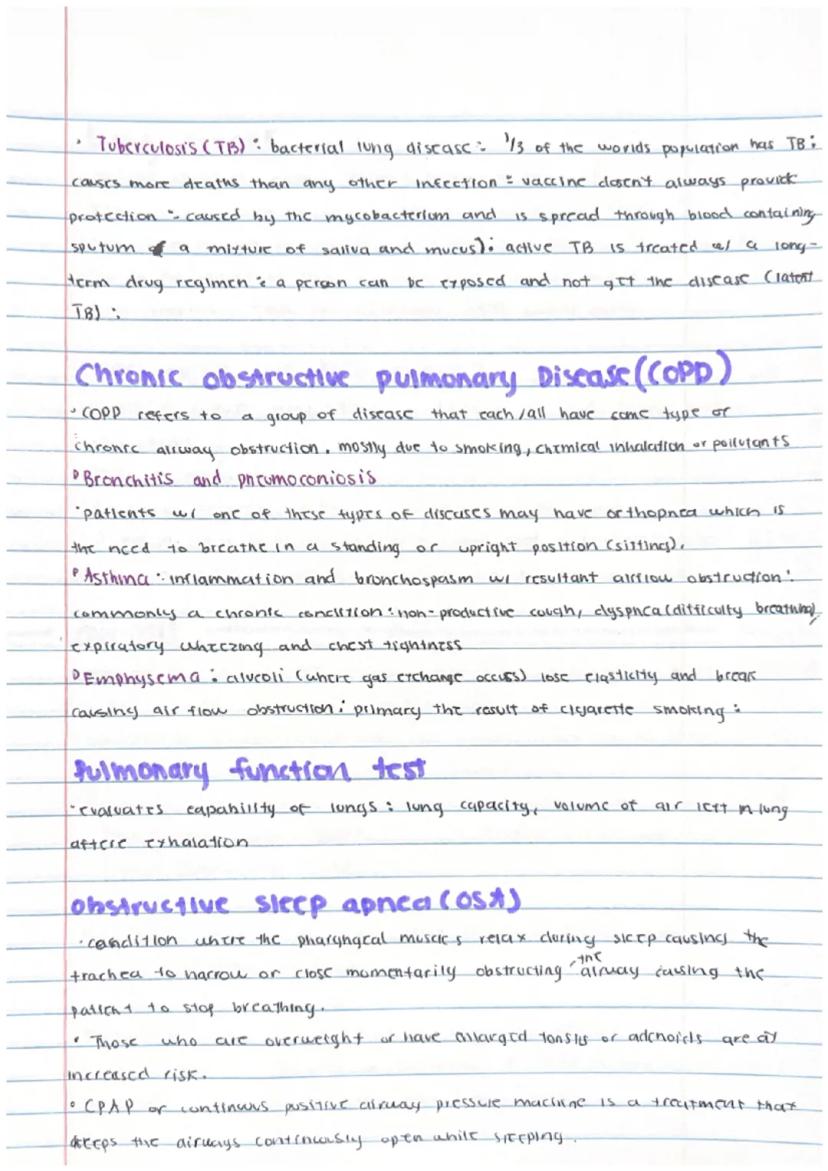 • Tuberculosis (TB) : bacterial lung disease : 1/3 of the worlds population has TB :
causes more deaths than any other infection : vaccine dosen't always provide
protection : caused by the mycobacterium and is spread through blood containing
sputum ( a mixture of saliva and mucus) : active TB is treated w/ a long-
term drug regimen : a person can be exposed and not get the disease (latent
TB) :
Chronic obstructive pulmonary Disease (COPD)
• COPD refers to a group of disease that each/all have some type of
chronic airway obstruction. mostly due to smoking, chemical inhalation or pollutants
Bronchitis and pneumoconiosis
• patients w/ one of these types of diseases may have orthopnea which is
the need to breathe in a standing or upright position (sitting).
Asthma : inflammation and bronchospasm w/ resultant airflow obstruction :
commonly a chronic condition : non-productive cough, dyspnea (difficulty breathing)
expiratory wheezing and chest tightness
Emphysema : alveoli (where gas exchange occurs) lose elasticity and break
causing air flow obstruction : primary the result of cigarette smoking :
Pulmonary function test
• evaluates capability of lungs : lung capacity, volume of air left in lung
aftere exhalation
obstructive sleep apnea (OSA)
• condition where the pharyngeal muscles relax during sleep causing the
trachea to narrow or close momentarily obstructing the airway causing the
patient to stop breathing.
• Those who are overweight or have enlarged tonsils or adenoids are at
increased risk.
• CPAP or continuous positive airway pressure machine is a treatment that
keeps the airways continuously open while sleeping.